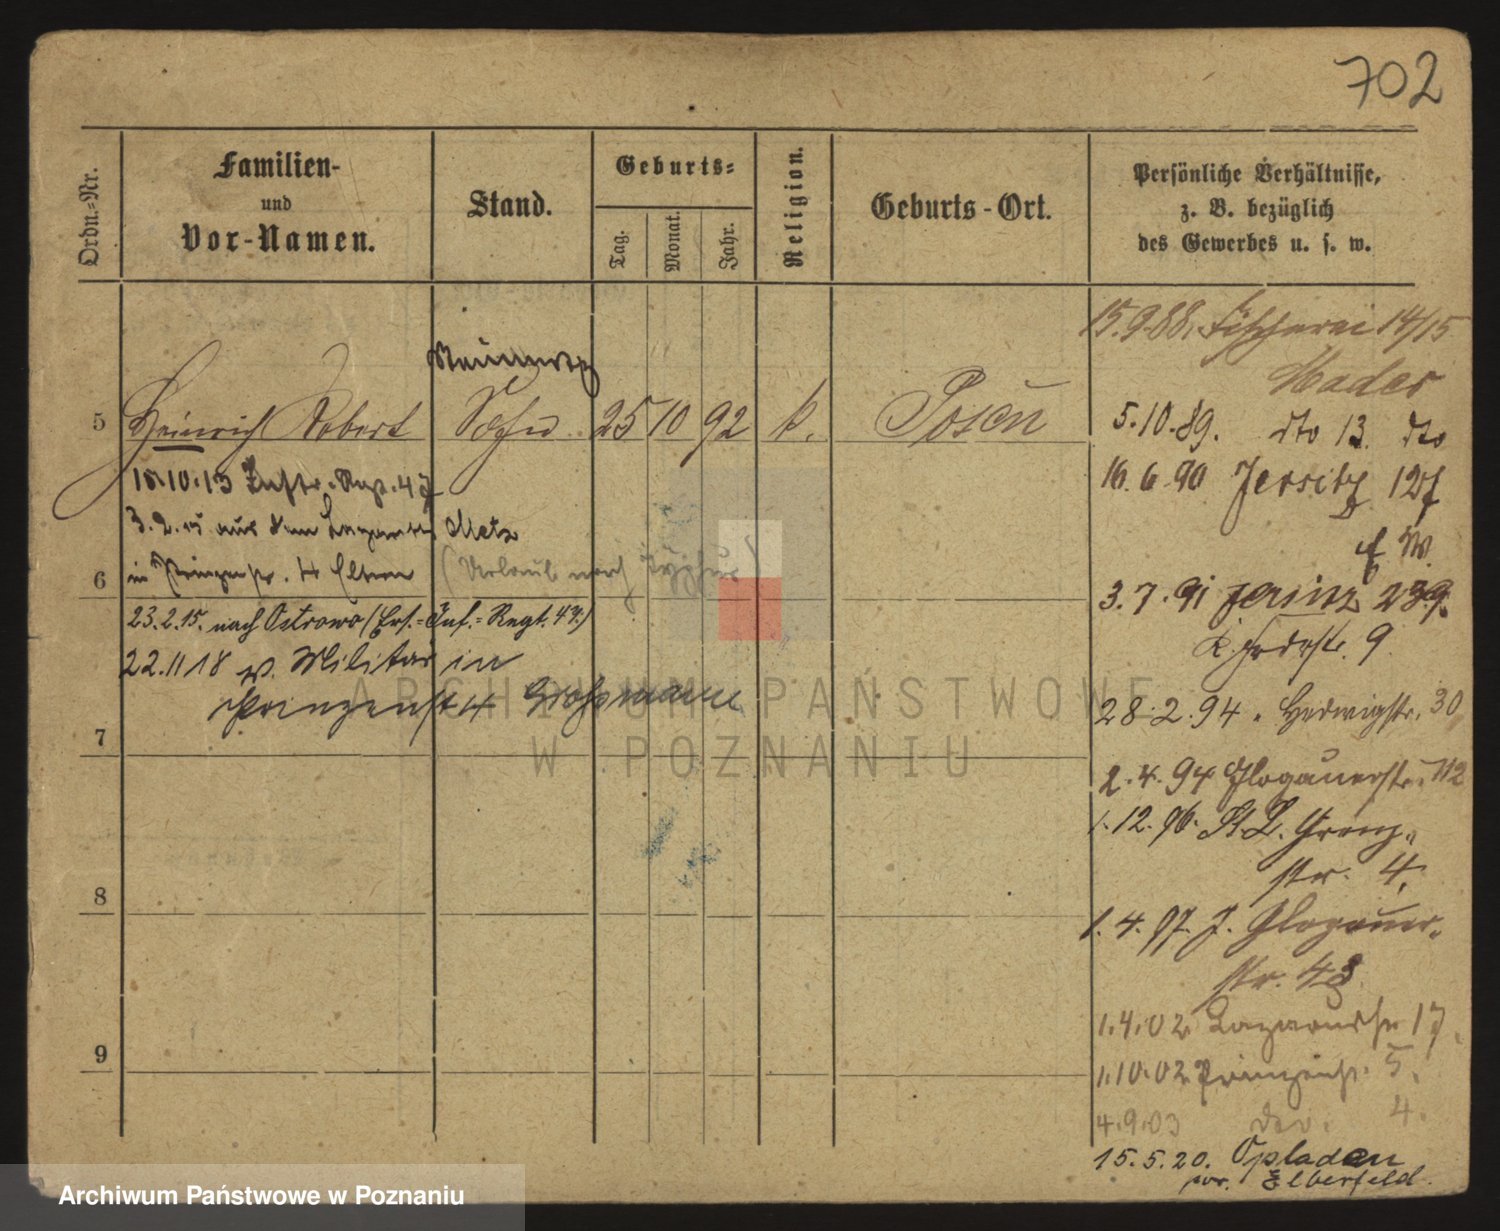 702
Ordn.-Nr.
Familien-
und
Vor-Namen.
Stand.
Geburts-
Tag.
Monat.
Jahr.
Religion.
Geburts-Ort.
Persönliche Verhältnisse,
z. B. bezüglich
des Gewerbes u. s. w.
5
Heinrich Robert
Sohn
25
10
92
k.
Posen
15.10.13 Inftr. Rgt. 47
3.2.15 aus dem Lazarett Metz
6
in Prinzenstr. 4 Eltern (Urlaub nach Typhus)
23.2.15. nach Ostrowo (Ers.=Inf.=Regt. 47.)
22.11.18 v. Militär in
Prinzenstr 4 Großmann
7
8
9
15.9.88. Fischerei 14/15
Mader
5.10.89. dto 13. dto
16.6.90 Jersitz
3.7.91
9.
28.2.94. Hedwigstr. 30
2.4.94 Glogauerstr. 112
1.12.96. St. L. Grenz-
str. 4.
1.4.97. J. Glogauer-
str. 43
1.4.02 Lazarusstr 17.
1.10.02 Prinzenstr. 5.
4.9.03 do. 4.
15.5.20. Opladen
Elberfeld.
ARCHIWUM PAŃSTWOWE
W POZNANIU
Archiwum Państwowe w Poznaniu